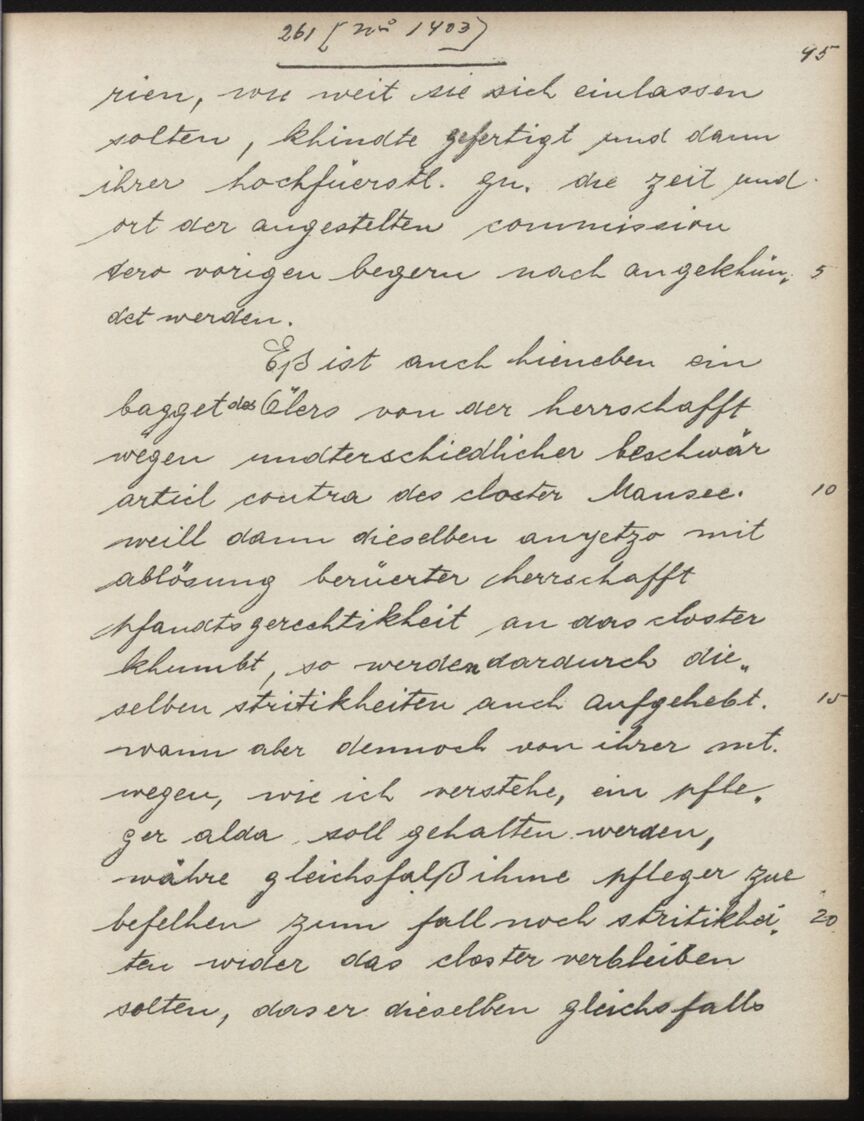 261 [No 1403]
95
rien, wie weit sie sich einlassen
solten, khindte gefertigt und dann
ihrer hochfüerstl. gn. die zeit und
ort der angestelten commission
dero vorigen begern nach angekhün„ 5
det werden.
Eß ist auch hieneben ein
bagget des Ölers von der herrschafft
wegen undterschiedlicher beschwär
articl contra des closter Mansee. 10
weill dann dieselben anyetzo mit
ablösung berüerter herrschafft
pfandtsgerechtikheit an das closter
khumbt, so werden dardurch die„
selben stritikheiten auch aufgehebt. 15
wann aber dennoch von ihrer mt.
wegen, wie ich verstehe, ein pfle„
ger alda soll gehalten werden,
währe gleichsfalß ihme pfleger zue
befelhen zum fall noch stritikhei„ 20
ten wider das closter verbleiben
solten, das er dieselben gleichsfalls